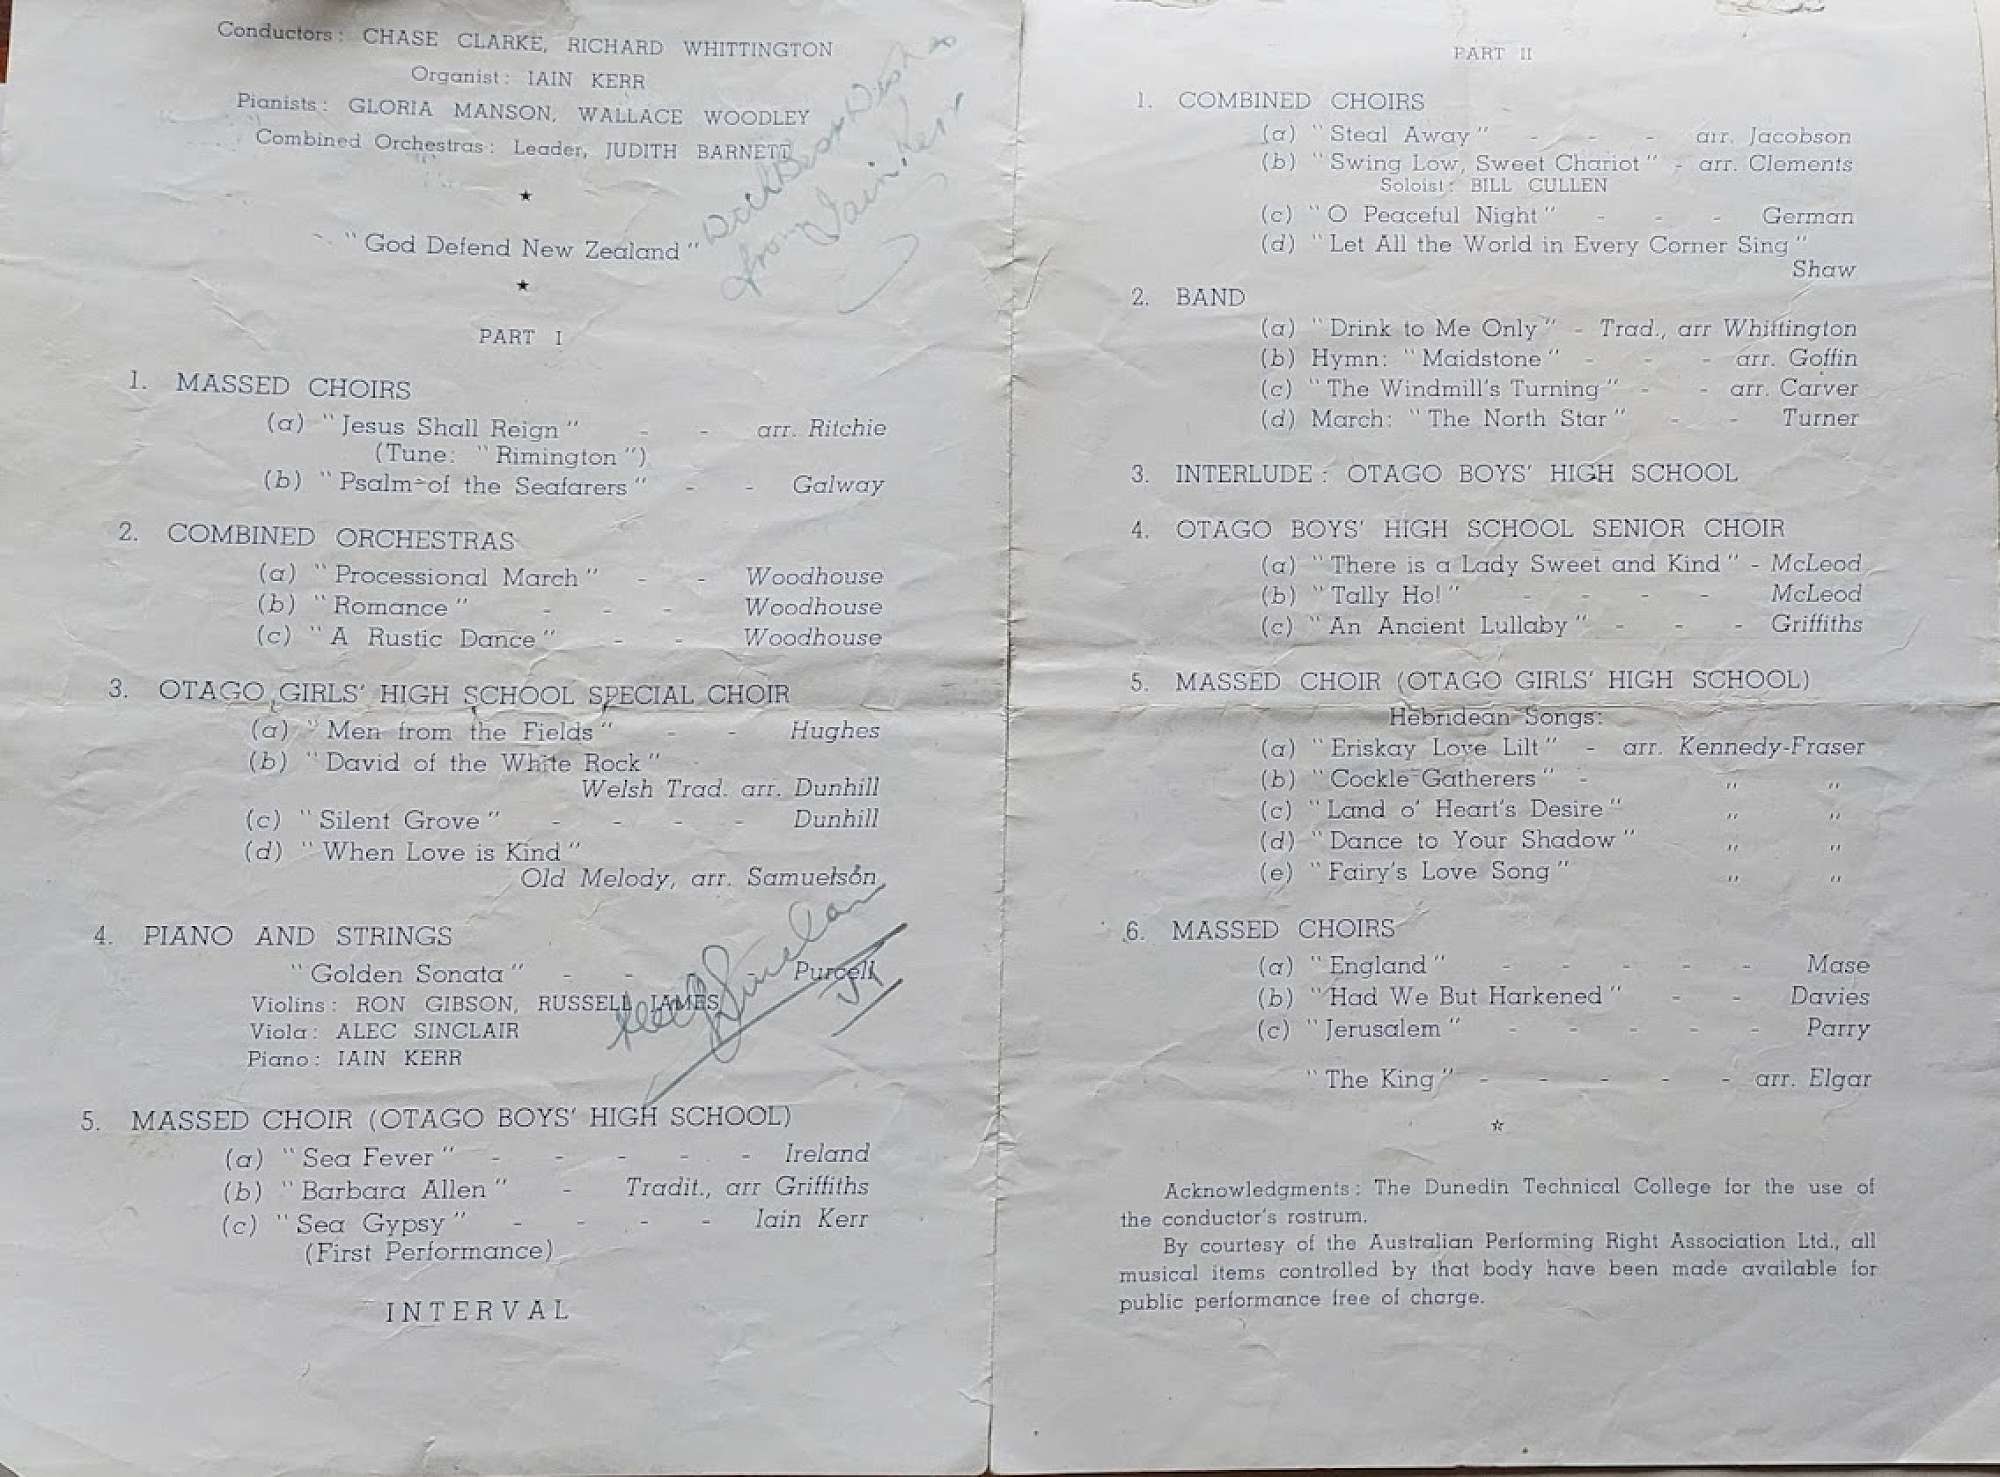 Conductors: CHASE CLARKE, RICHARD WHITTINGTON
Organist: IAIN KERR
Pianists: GLORIA MANSON, WALLACE WOODLEY
Combined Orchestras: Leader, JUDITH BARNETT
With Best Wishes
from Iain Kerr
★
"God Defend New Zealand"
★
PART I
1. MASSED CHOIRS
(a) "Jesus Shall Reign" - - arr. Ritchie
(Tune: "Rimington")
(b) "Psalm of the Seafarers" - - Galway
2. COMBINED ORCHESTRAS
(a) "Processional March" - - Woodhouse
(b) "Romance" - - - Woodhouse
(c) "A Rustic Dance" - - Woodhouse
3. OTAGO GIRLS' HIGH SCHOOL SPECIAL CHOIR
(a) "Men from the Fields" - - Hughes
(b) "David of the White Rock"
Welsh Trad. arr. Dunhill
(c) "Silent Grove" - - - - Dunhill
(d) "When Love is Kind"
Old Melody, arr. Samuelson
4. PIANO AND STRINGS
"Golden Sonata" - - Purcell
Violins: RON GIBSON, RUSSELL JAMES
Viola: ALEC SINCLAIR
Piano: IAIN KERR
Alec J Sinclair
5. MASSED CHOIR (OTAGO BOYS' HIGH SCHOOL)
(a) "Sea Fever" - - - - - Ireland
(b) "Barbara Allen" - Tradit., arr Griffiths
(c) "Sea Gypsy" - - - - Iain Kerr
(First Performance)
INTERVAL
PART II
1. COMBINED CHOIRS
(a) "Steal Away" - - - arr. Jacobson
(b) "Swing Low, Sweet Chariot" - arr. Clements
Soloist: BILL CULLEN
(c) "O Peaceful Night" - - - German
(d) "Let All the World in Every Corner Sing"
Shaw
2. BAND
(a) "Drink to Me Only" - Trad., arr Whittington
(b) Hymn: "Maidstone" - - - arr. Goffin
(c) "The Windmill's Turning" - - arr. Carver
(d) March: "The North Star" - - Turner
3. INTERLUDE: OTAGO BOYS' HIGH SCHOOL
4. OTAGO BOYS' HIGH SCHOOL SENIOR CHOIR
(a) "There is a Lady Sweet and Kind" - McLeod
(b) "Tally Ho!" - - - - McLeod
(c) "An Ancient Lullaby" - - - Griffiths
5. MASSED CHOIR (OTAGO GIRLS' HIGH SCHOOL)
Hebridean Songs:
(a) "Eriskay Love Lilt" - arr. Kennedy-Fraser
(b) "Cockle Gatherers" - " "
(c) "Land o' Heart's Desire" " "
(d) "Dance to Your Shadow" " "
(e) "Fairy's Love Song" " "
6. MASSED CHOIRS
(a) "England" - - - - - Mase
(b) "Had We But Harkened" - - Davies
(c) "Jerusalem" - - - - - Parry
"The King" - - - - - arr. Elgar
☆
Acknowledgments: The Dunedin Technical College for the use of
the conductor's rostrum.
By courtesy of the Australian Performing Right Association Ltd., all
musical items controlled by that body have been made available for
public performance free of charge.